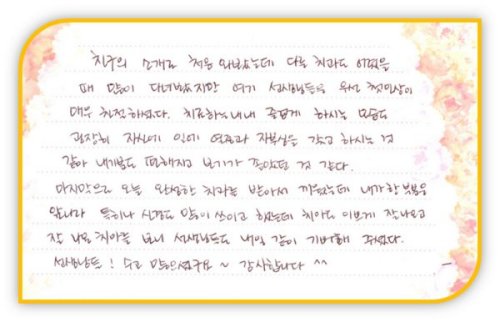 친구의 소개로 처음 와봤는데 다른 치과도 어렸을
때 많이 다녀봤지만 여기 선생님들은 우선 첫인상이
매우 친절하셨다. 치료하는내내 즐겁게 하시는 모습도
굉장히 자신의 일에 열정과 자부심을 갖고 하시는 것
같아 내기분도 편해지고 보기가 좋았던 것 같다.
마지막으로 오늘 완성한 치과를 받아서 끼웠는데 내가 한 부분은
앞니라 특히나 신경도 많이 쓰이고 했는데 치아도 이쁘게 잘 나오고
잘 나온 치아를 보니 선생님들도 내일 같이 기뻐해 주셨다.
선생님들! 수고 많으셨구요 ~ 감사합니다 ^^